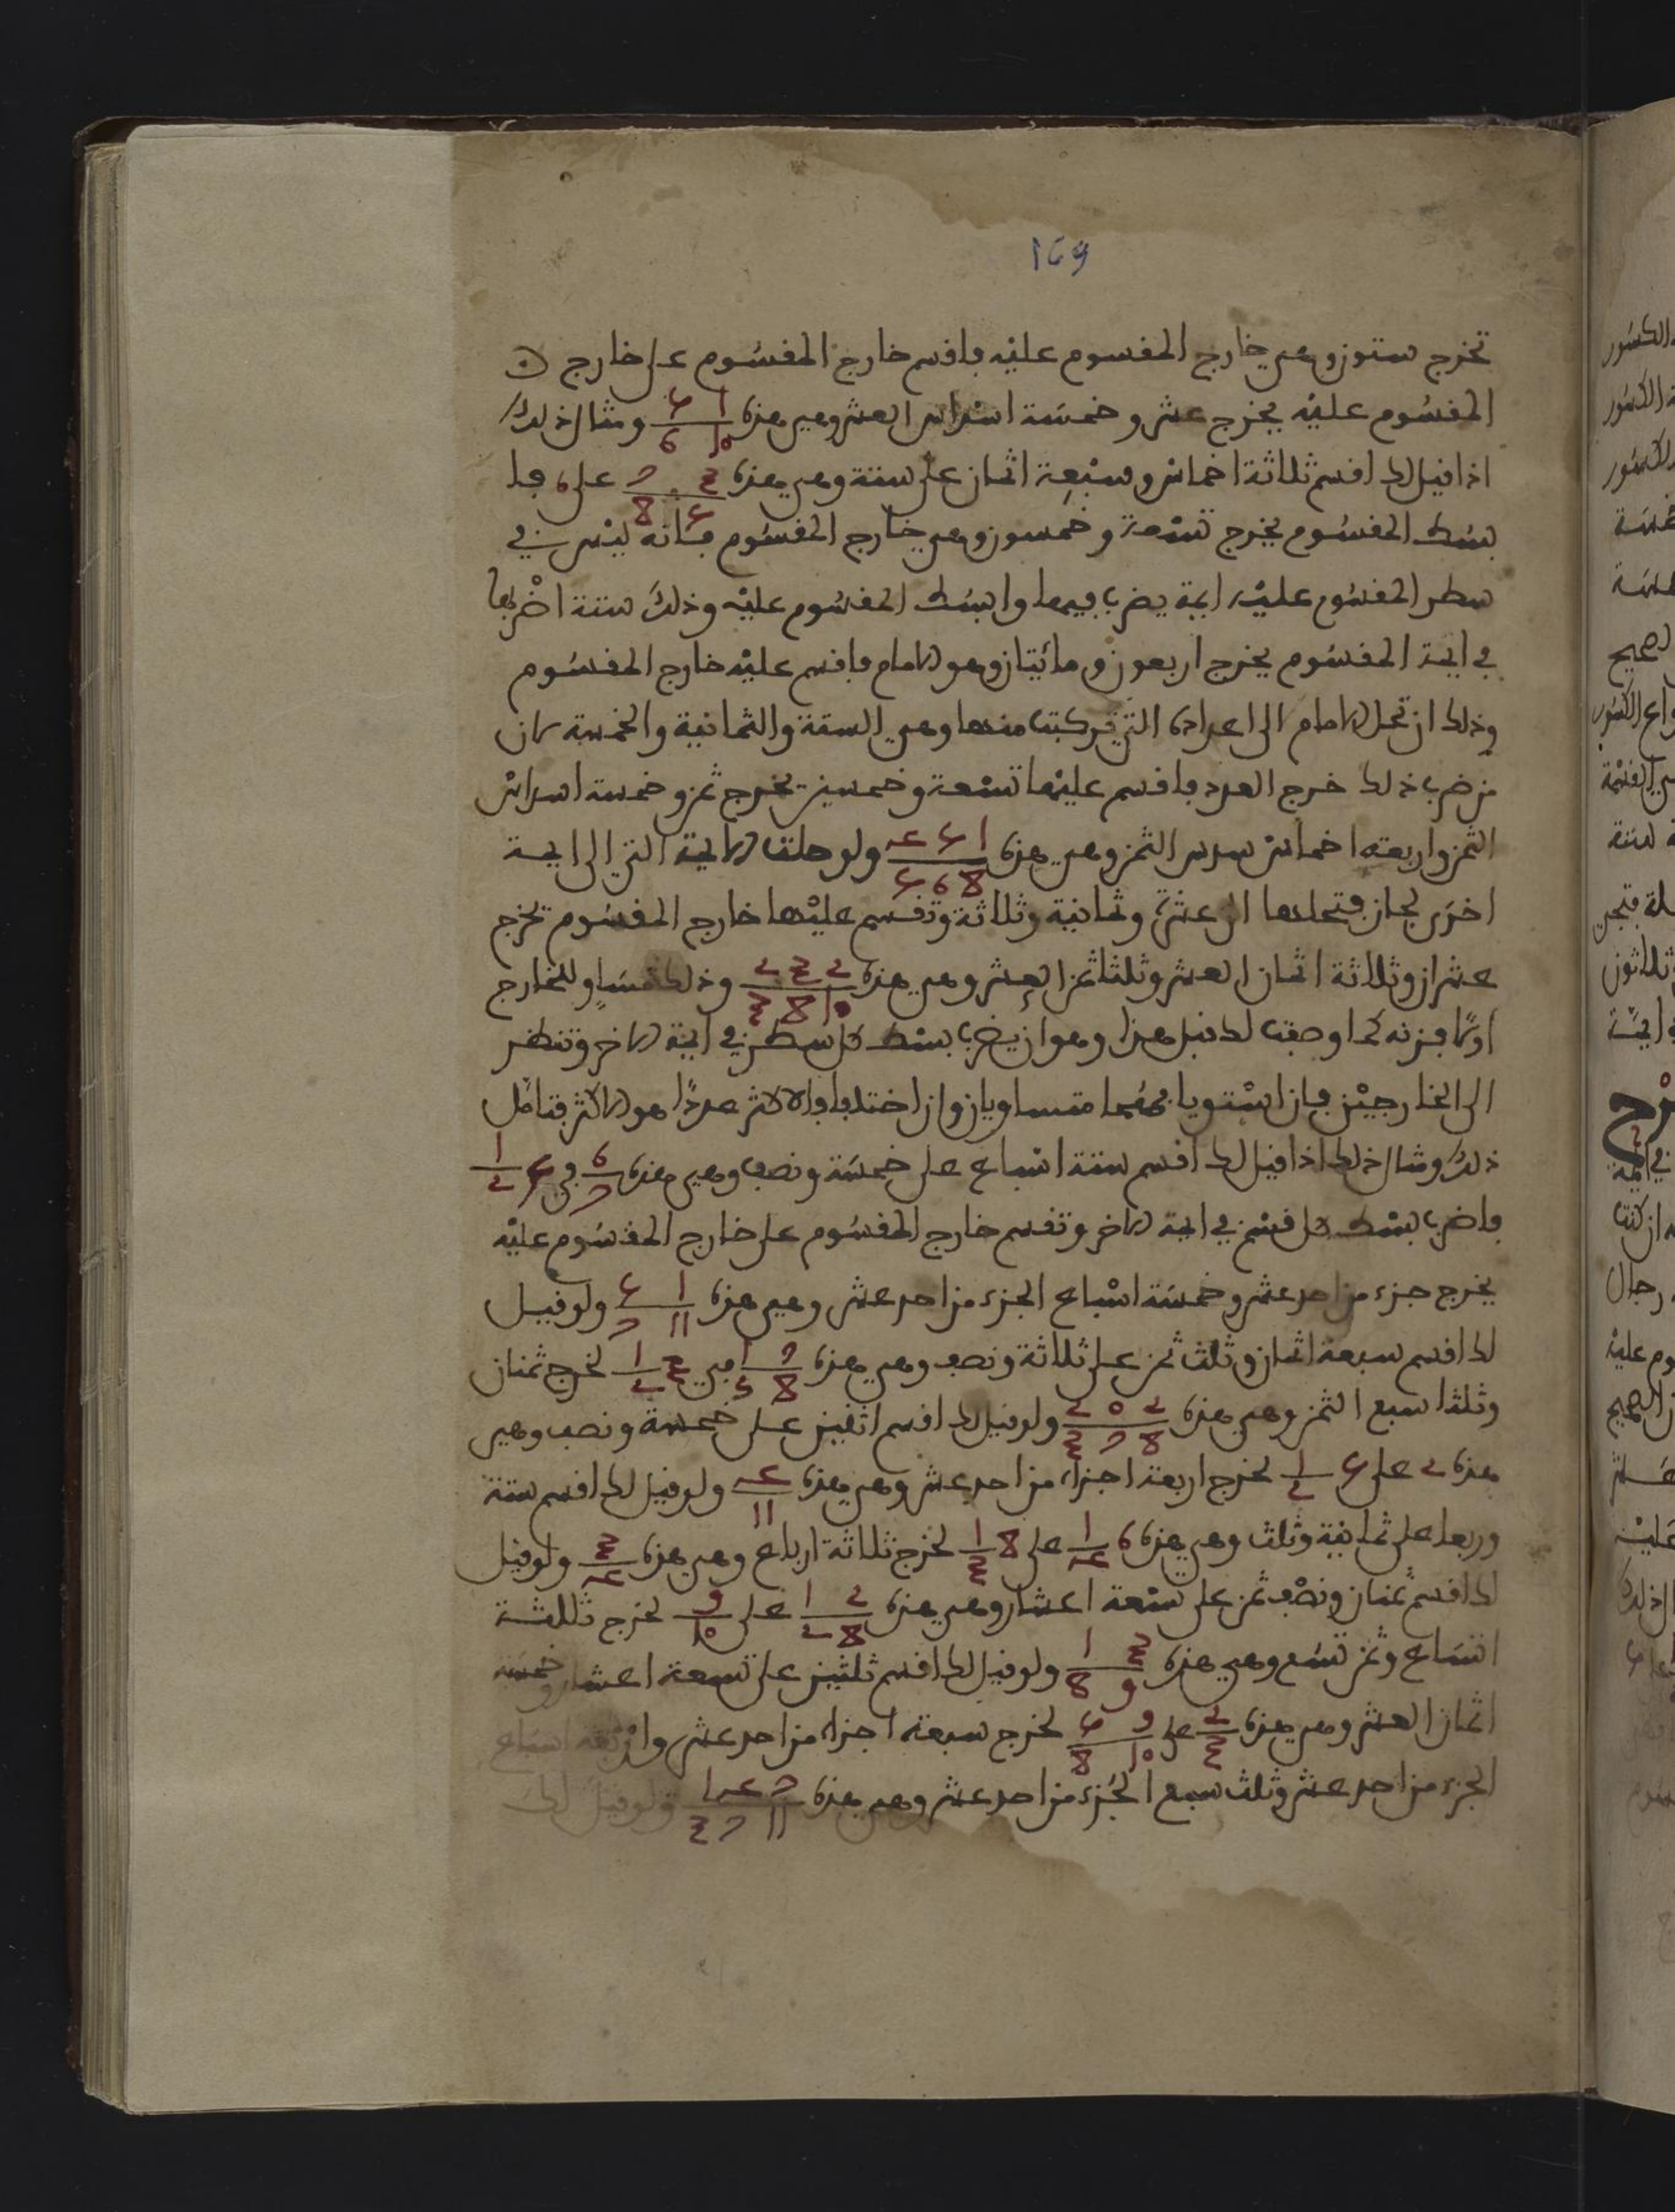 169
تخرج ستون وهي خارج المقسوم عليه فاقسم خارج المقسوم على خارج
المقسوم عليه يخرج عشر وخمسة اسداس العشر وهي هذه 1 5 / 10 6 ومثال ذلك
اذا قيل لك اقسم ثلاثة اخماس وسبعة اثمان على ستة وهي هذه 3 7 / 5 8 على 6 فا
بسط المقسوم يخرج تسعة وخمسون وهي خارج المقسوم فانه ليس في
سطر المقسوم عليه ايمة يضرب فيها وابسط المقسوم عليه وذلك ستة اضربها
في ايمة المقسوم يخرج اربعون ومائيتان وهو الامام فاقسم عليه خارج المقسوم
وذلك ان تحل الامام الى اعداده التي تركبت منها وهي الستة والثمانية والخمسة لان
من ضرب ذلك خرج العدد فاقسم عليها تسعة وخمسين يخرج ثمن وخمسة اسداس
الثمن واربعة اخماس سدس الثمن وهي هذه 1 5 4 / 8 6 5 ولو حلت الايمة التي الى ايمة
اخرى لجاز فتحلها الى عشرة وثمانية وثلاثة وتقسم عليها خارج المقسوم يخرج
عشران وثلاثة اثمان العشر وثلثا ثمن العشر وهي هذه 2 3 2 / 10 8 3 وذلك مساو للخارج
اولا فزنه كما اوصفت لك قبل هذا وهو ان يضرب بسط كل سطر في ايمة الاخر وتنظر
الى الخارجين فان استويا فهما متساويان وان اختلفا فالاكثر عددا هو الاكثر فتامل
ذلك ومثال ذلك اذا قيل لك اقسم ستة اسباع على خمسة ونصف وهي هذه 6 / 7 في 5 1 / 2
فاضرب بسط كل قسم في ايمة الاخر وتقسم خارج المقسوم على خارج المقسوم عليه
يخرج جزء من احد عشر وخمسة اسباع الجزء من احد عشر وهي هذه 1 5 / 11 7 ولو قيل
لك اقسم سبعة اثمان وثلث ثمن على ثلاثة ونصف وهي هذه 7 1 / 8 3 في 3 1 / 2 لخرج ثمنان
وثلثا سبع الثمن وهي هذه 2 0 2 / 8 7 3 ولو قيل لك اقسم اثنين على خمسة ونصف وهي
هذه 2 على 5 1 / 2 لخرج اربعة اجزاء من احد عشر وهي هذه 4 / 11 ولو قيل لك اقسم ستة
وربعا على ثمانية وثلث وهي هذه 6 1 / 4 على 8 1 / 3 لخرج ثلاثة ارباع وهي هذه 3 / 4 ولو قيل
لك اقسم ثمنان ونصف ثمن على تسعة اعشار وهي هذه 2 1 / 8 2 على 9 / 10 لخرج ثللثة
اتساع وثمن تسع وهي هذه 3 1 / 9 8 ولو قيل لك اقسم ثلثين على تسعة اعشار وخمسة
اثمان العشر وهي هذه 2 / 3 على 9 5 / 10 8 لخرج سبعة اجزاء من احد عشر واربعة اسباع
الجزء من احد عشر وثلث سبع الجزء من احد عشر وهي هذه 7 4 1 / 11 7 3 ولو قيل لك